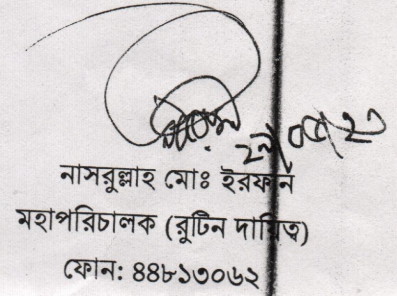 নাসরুল্লাহ মোঃ ইরফান
মহাপরিচালক (রুটিন দায়িত্ব)
ফোন: ৪৪৮১৩০৬২